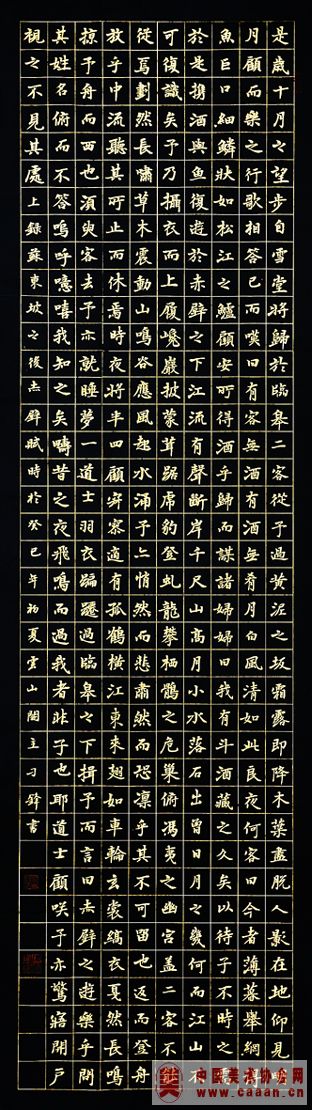 是歲十月之望步自雪堂將歸於臨皋二客從予過黃泥之坂霜露即降木葉盡脫人影在地仰見明
月顧而樂之行歌相答已而嘆曰有客無酒有酒無肴月白風清如此良夜何客曰今者薄暮舉網得
魚巨口細鱗狀如松江之鱸顧安所得酒乎歸而謀諸婦婦曰我有斗酒藏之久矣以待子不時之
於是携酒與魚復遊於赤壁之下江流有聲斷岸千尺山高月小水落石出曾日月之幾何而江山不
可復識矣予乃攝衣而上履巉巖披蒙茸踞虎豹登虬龍攀栖鶻之危巢俯馮夷之幽宮蓋二客不能
從焉劃然長嘯草木震動山鳴谷應風起水涌予亦悄然而悲肅然而恐凛乎其不可留也返而登舟
放乎中流聽其所止而休焉時夜將半四顧寂寥適有孤鶴橫江東來翅如車輪玄裳縞衣戛然長鳴
掠予舟而西也須臾客去予亦就睡夢一道士羽衣蹁躚過臨皋之下揖予而言曰赤壁之遊樂乎問
其姓名俯而不答嗚呼噫嘻我知之矣疇昔之夜飛鳴而過我者非子也耶道士顧咲予亦驚寤開戶
視之不見其處上錄蘇東坡之後赤壁賦時於癸巳年初夏雲山閣主刁鋒書
中国美术家网
www.caaan.cn